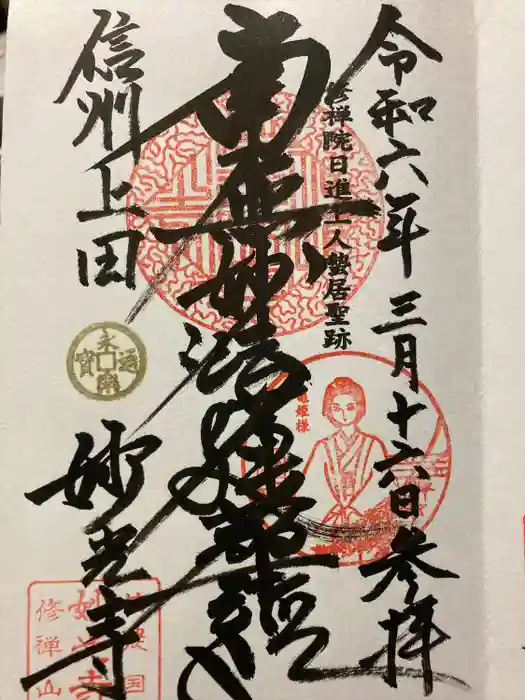 令和六年三月十六日参拝
修禅院日進上人蟄居聖跡
南無妙法蓮華経
信州上田
永樂通寳
妙光寺
竜姫様
修禅山
妙光寺